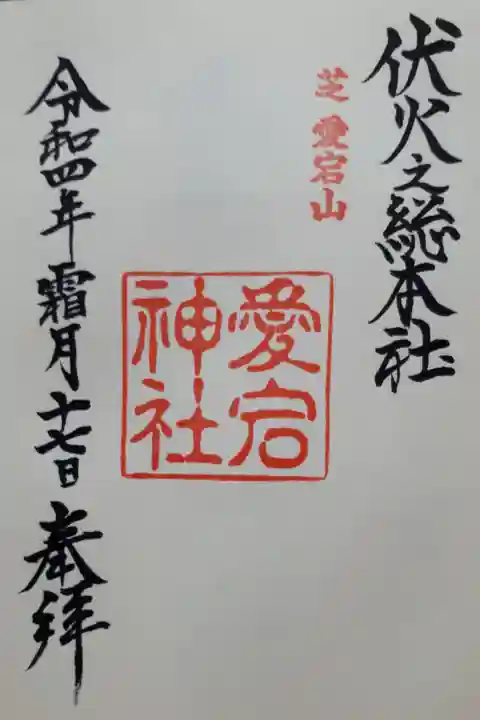 伏火之総本社
芝愛宕山
愛宕
神社
令和四年霜月十七日奉拝